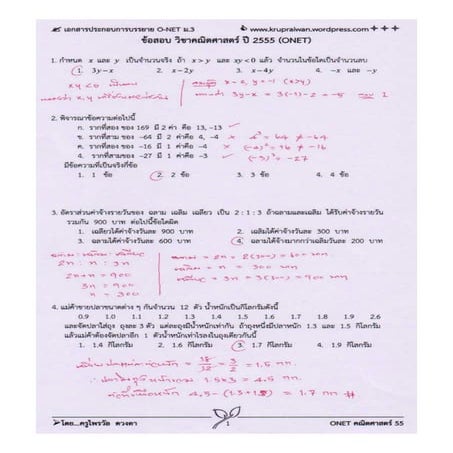 เอกสารประกอบการบรรยาย O-NET ม.3 www.krupraiwan.wordpress.com
ข้อสอบ วิชาคณิตศาสตร์ ปี 2555 (ONET)
1. กำหนด x และ y เป็นจำนวนจริง ถ้า x > y และ xy < 0 แล้ว จำนวนในข้อใดเป็นจำนวนลบ
1. 3y – x 2. x – 2y 3. x – y 4. –x และ –y
xy < 0 เป็นลบ สมมติ x = 2, y = -1 (x>y)
แสดงว่า x, y 3y-x = 3(-1)-2 = -5 ตอบ 1
2. พิจารณาข้อความต่อไปนี้
ก. รากที่สองของ 169 มี 2 ค่า คือ 13, –13 ✓
ข. รากที่สามของ –64 มี 2 ค่าคือ 4, –4 × 4² = 64 ≠ -64
ค. รากที่สองของ –16 มี 1 ค่าคือ –4 × (-4)² = 16 ≠ -16
ง. รากที่สามของ –27 มี 1 ค่าคือ –3 ✓ (-3)³ = -27
มีข้อความที่เป็นจริงกี่ข้อ
1. 1 ข้อ 2. 2 ข้อ 3. 3 ข้อ 4. 4 ข้อ
3. อัตราส่วนค่าจ้างรายวันของ ฉลาม เฉลิม เฉลียว เป็น 2 : 1 : 3 ถ้าฉลามและเฉลิม ได้รับค่าจ้างรายวัน
รวมกัน 900 บาท ต่อไปนี้ข้อใดผิด
1. เฉลียวได้ค่าจ้างวันละ 900 บาท 2. เฉลิมได้ค่าจ้างวันละ 300 บาท
3. ฉลามได้ค่าจ้างวันละ 600 บาท 4. ฉลามได้ค่าจ้างมากกว่าเฉลิมวันละ 200 บาท
ฉลาม : เฉลิม : เฉลียว ฉลาม = 2n = 2(300) = 600 บาท
2n : n : 3n เฉลิม = n = 300 บาท
2n+n = 900 เฉลียว = 3n = 3(300) = 900 บาท
3n = 900
n = 300
4. แม่ค้าขายปลาขนาดต่าง ๆ กันจำนวน 12 ตัว น้ำหนักเป็นกิโลกรัมดังนี้
0.9 1.0 1.1 1.2 1.3 1.5 1.6 1.7 1.8 1.9 2.6
และจัดปลาใส่ถุง ถุงละ 3 ตัว แต่ละถุงมีน้ำหนักเท่ากัน ถ้าถุงหนึ่งมีปลาหนัก 1.3 และ 1.5 กิโลกรัม
แล้วแม่ค้าต้องจัดปลาอีก 1 ตัวน้ำหนักเท่าไรลงในถุงเดียวกันนี้
1. 1.4 กิโลกรัม 2. 1.6 กิโลกรัม 3. 1.7 กิโลกรัม 4. 1.9 กิโลกรัม
= 18/12 = 3/2 = 1.5 กก.
∴ 1.5×3 = 4.5 กก.
4.5-(1.3+1.5) = 1.7 กก #
โดย...ครูไพรวัล ดวงตา 1 ONET คณิตศาสตร์ 55